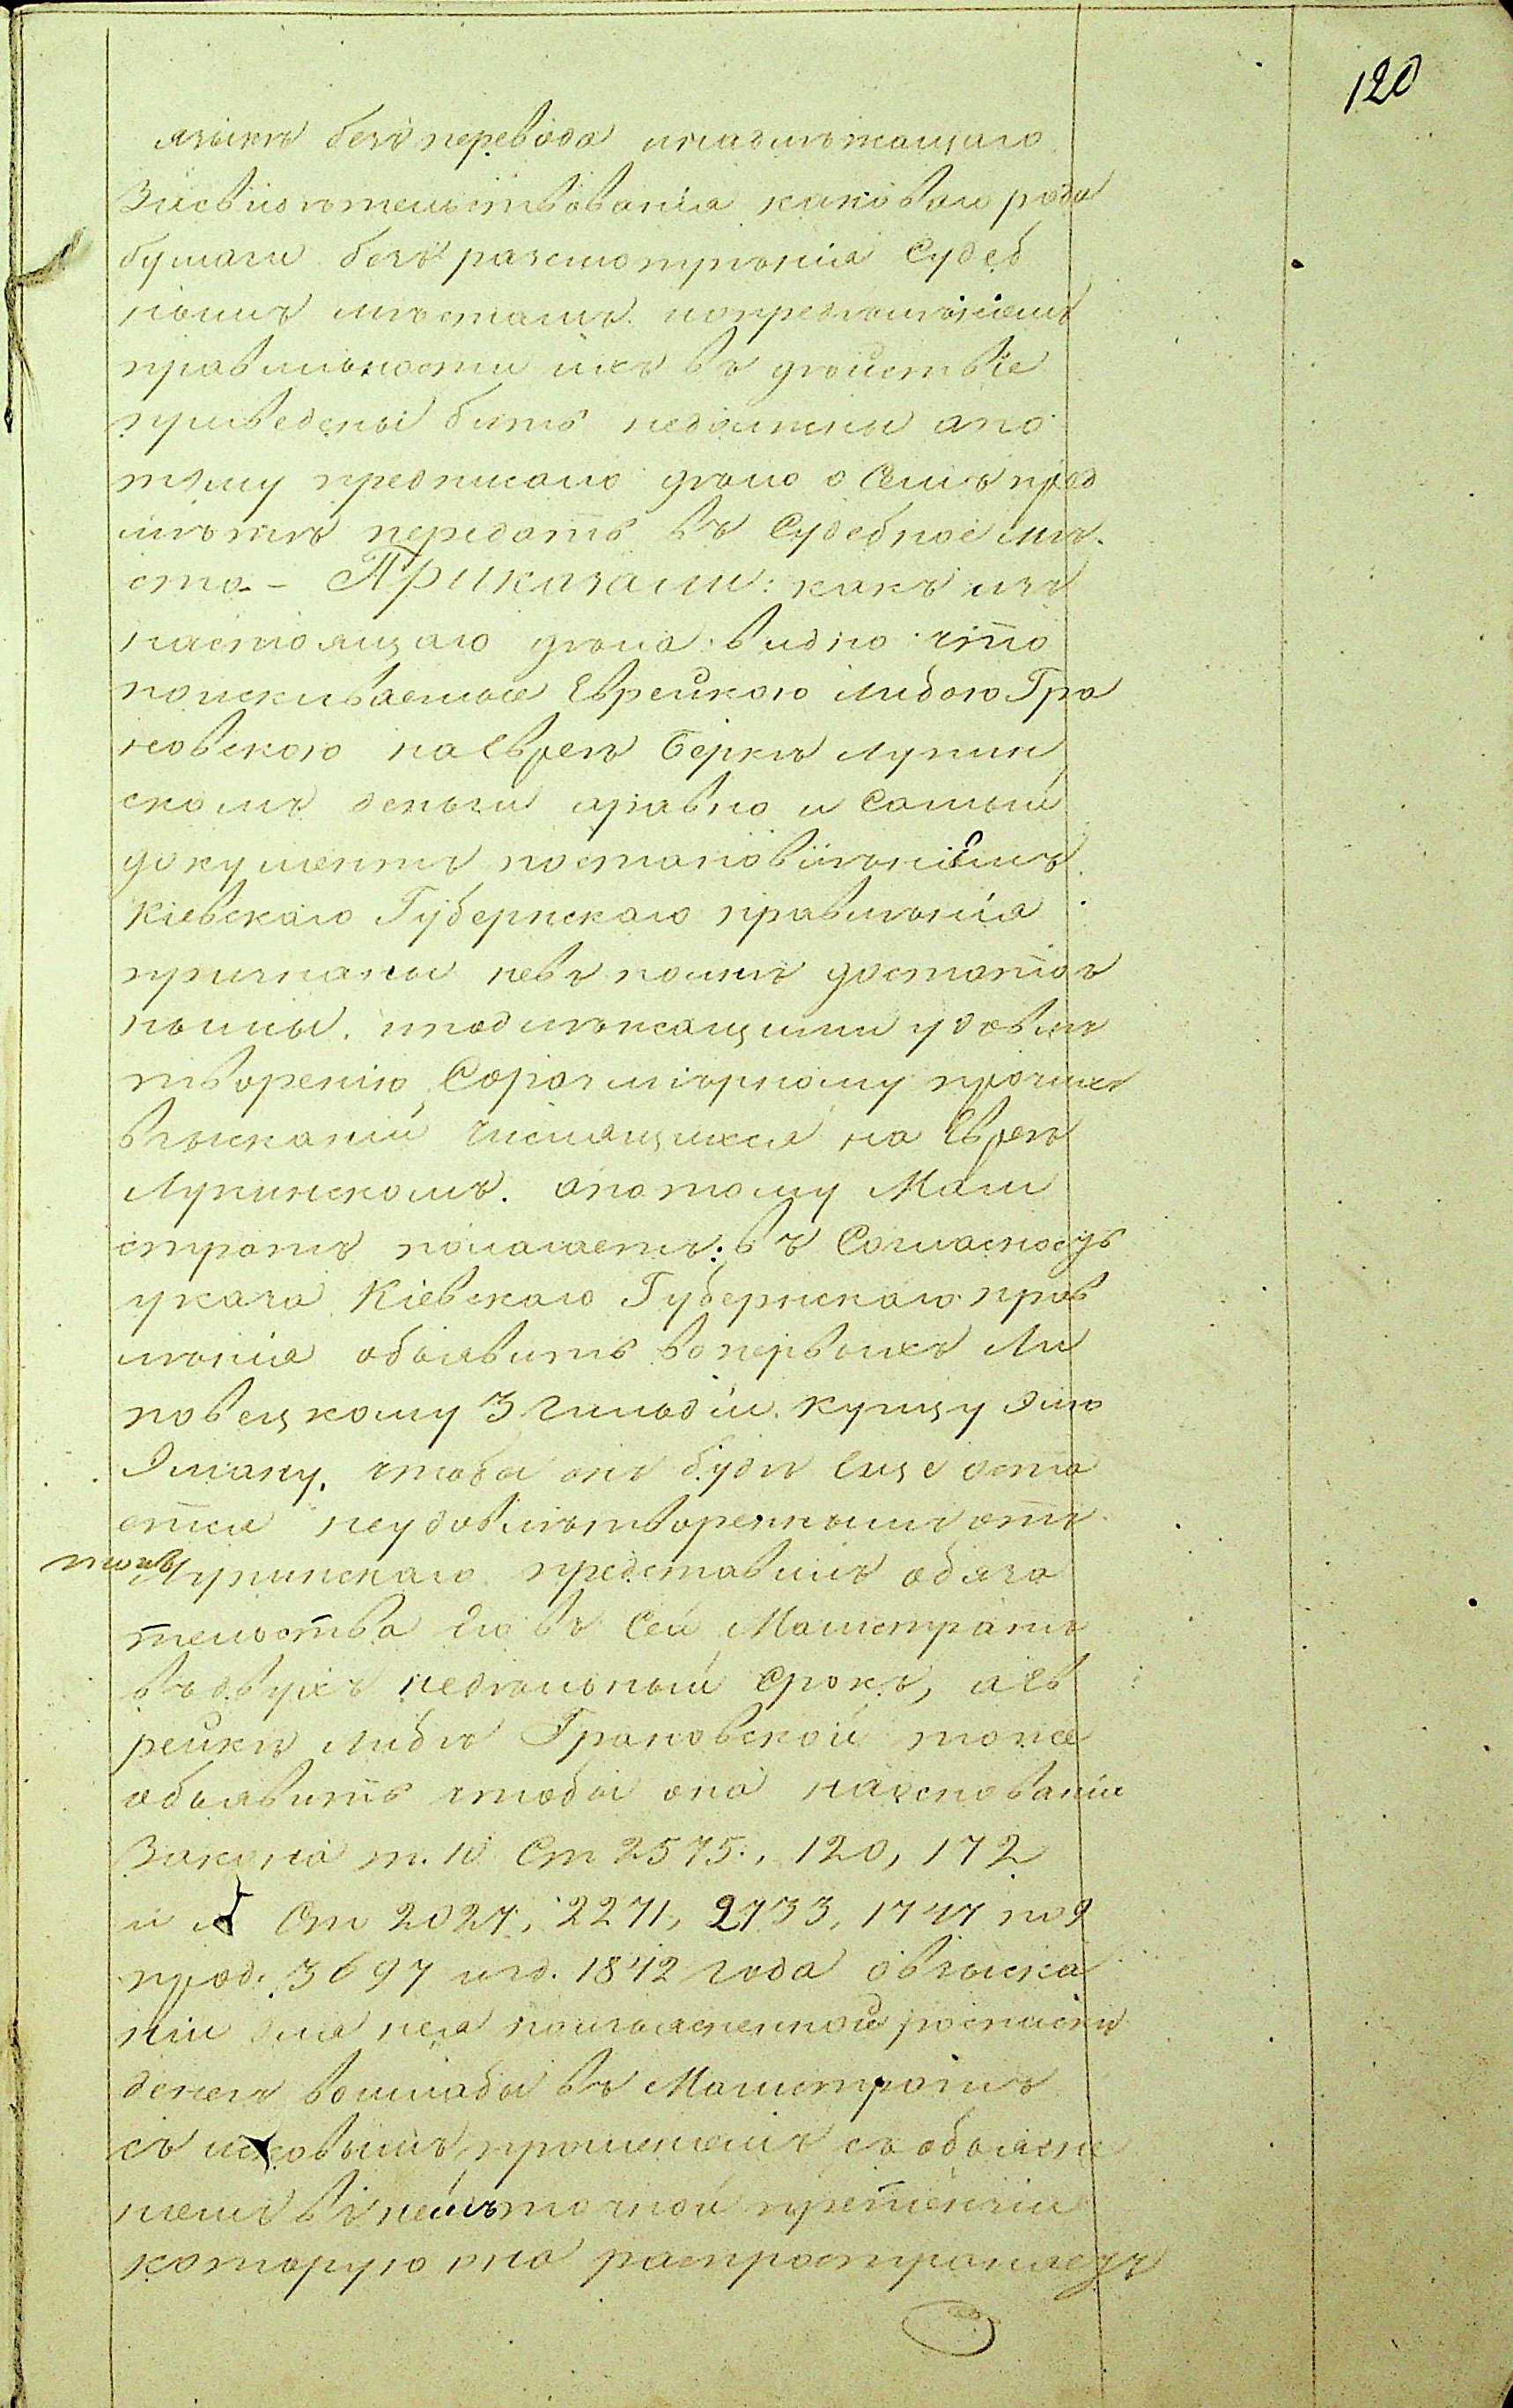 120
языкъ безъ перевода инадлѣжащаго
Засвидѣтельствованія каковаго рода
бумаги безъ разсмотрѣнія Судеб
нымъ мѣстамъ попредмѣтнѣсть
правильности ихъ въ дѣйствіе
приведены быть недолжны апо
тому предписано дѣло о Семъ пред
мѣтѣ передать въ Судебное мѣ
сто – Приказали: какъ изъ
настоящаго дѣла видно что
поискиваемые Еврейкою Либою Гра
новскою наЕвреѣ Беркѣ Лупин
скомъ деньги аравно и Самый
документъ постановлѣніемъ
Кіевскаго Губернскаго правлѣнія
признаны невъ полнѣ достаточ
ными, иподлѣжащими удовлѣ
творенію Соразмѣрному прочихъ
взысканій числящихся на Евреѣ
Лупинскомъ. апотому Маги
стратъ полагаетъ: въ Согласность
указа Кіевскаго Губернскаго прав
лѣнія объявить вопервыхъ Ли
повецкому 3 гильдіи купцу Эль
Эльману, чтобы онъ будѣ еще оста
ется неудовлѣтвореннымъ отъ
Лупинскаго представилъ обяза
тельства Его въ Сей Магистратъ
въдвухъ недѣльный Срокъ, аЕв
рейкѣ Либѣ Грановской тоже
объявить чтобы она наоснованіи
Закона т. 10 Ст 2575., 120, 172
и Ст 2027, 2271, 2733, 1747 по 9
прод. 3697 изд. 1842 года овзыска
ніи для нея поизъясненной роспискѣ
денегъ вошлабы въ Магистратъ
съ исковымъ прошеніемъ съ объясне
ніемъ въ немъ точной претензіи
которую она распространяетъ